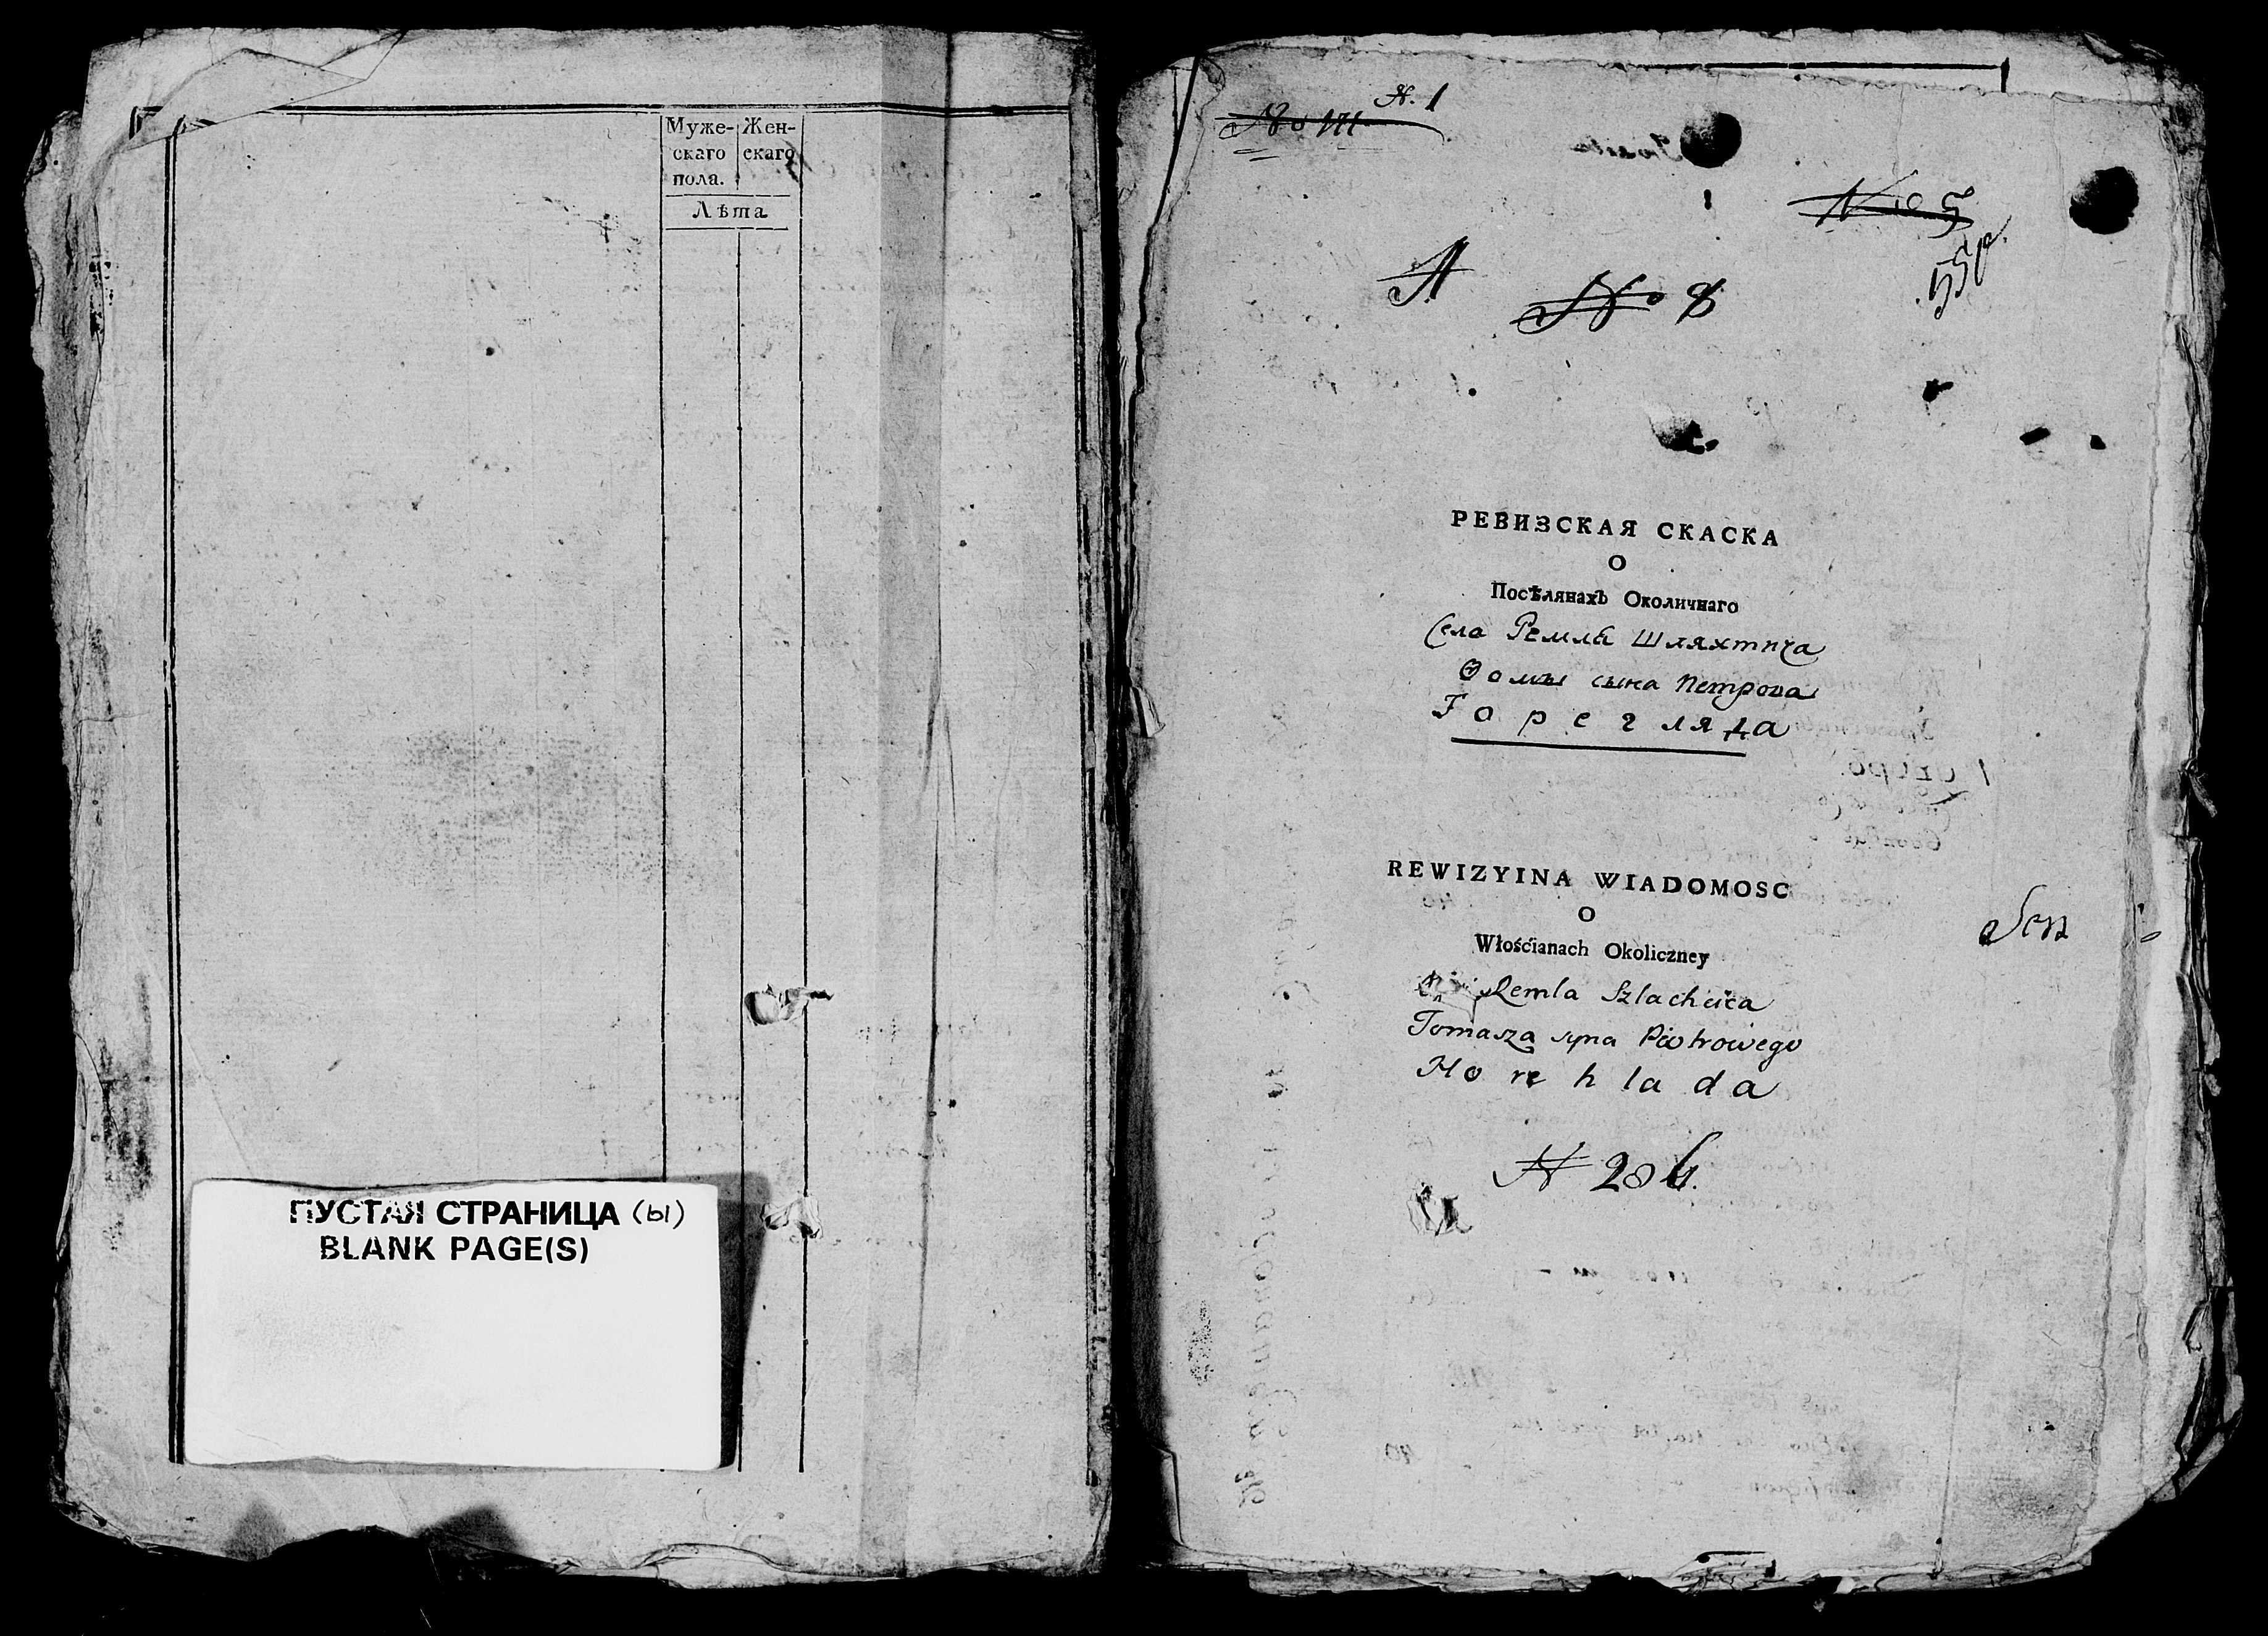 Муже- Жен-
скаго скаго
пола.
Лѣта
ПУСТАЯ СТРАНИЦА (ы)
BLANK PAGE(S)
N. 1
No 5
A No 8
РЕВИЗСКАЯ СКАСКА
О
Посѣлянахъ Околичнаго
Села Ремля Шляхтича
Ѳомы сына Петрова
Гарегляда
REWIZYINA WIADOMOSC
O
Włościanach Okoliczney
Remla Szlachcica
Tomasza syna Piotrowego
Horehlada
N 206.